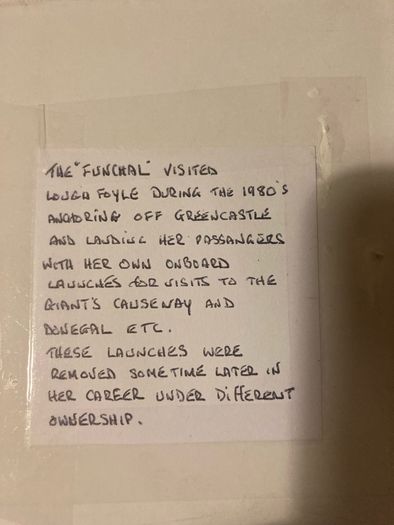 THE "FUNCHAL" VISITED
LOUGH FOYLE DURING THE 1980'S
ANCHORING OFF GREENCASTLE
AND LANDING HER PASSANGERS
WITH HER OWN ONBOARD
LAUNCHES FOR VISITS TO THE
GIANT'S CAUSEWAY AND
DONEGAL ETC.
THESE LAUNCHES WERE
REMOVED SOMETIME LATER IN
HER CAREER UNDER DIFFERENT
OWNERSHIP.